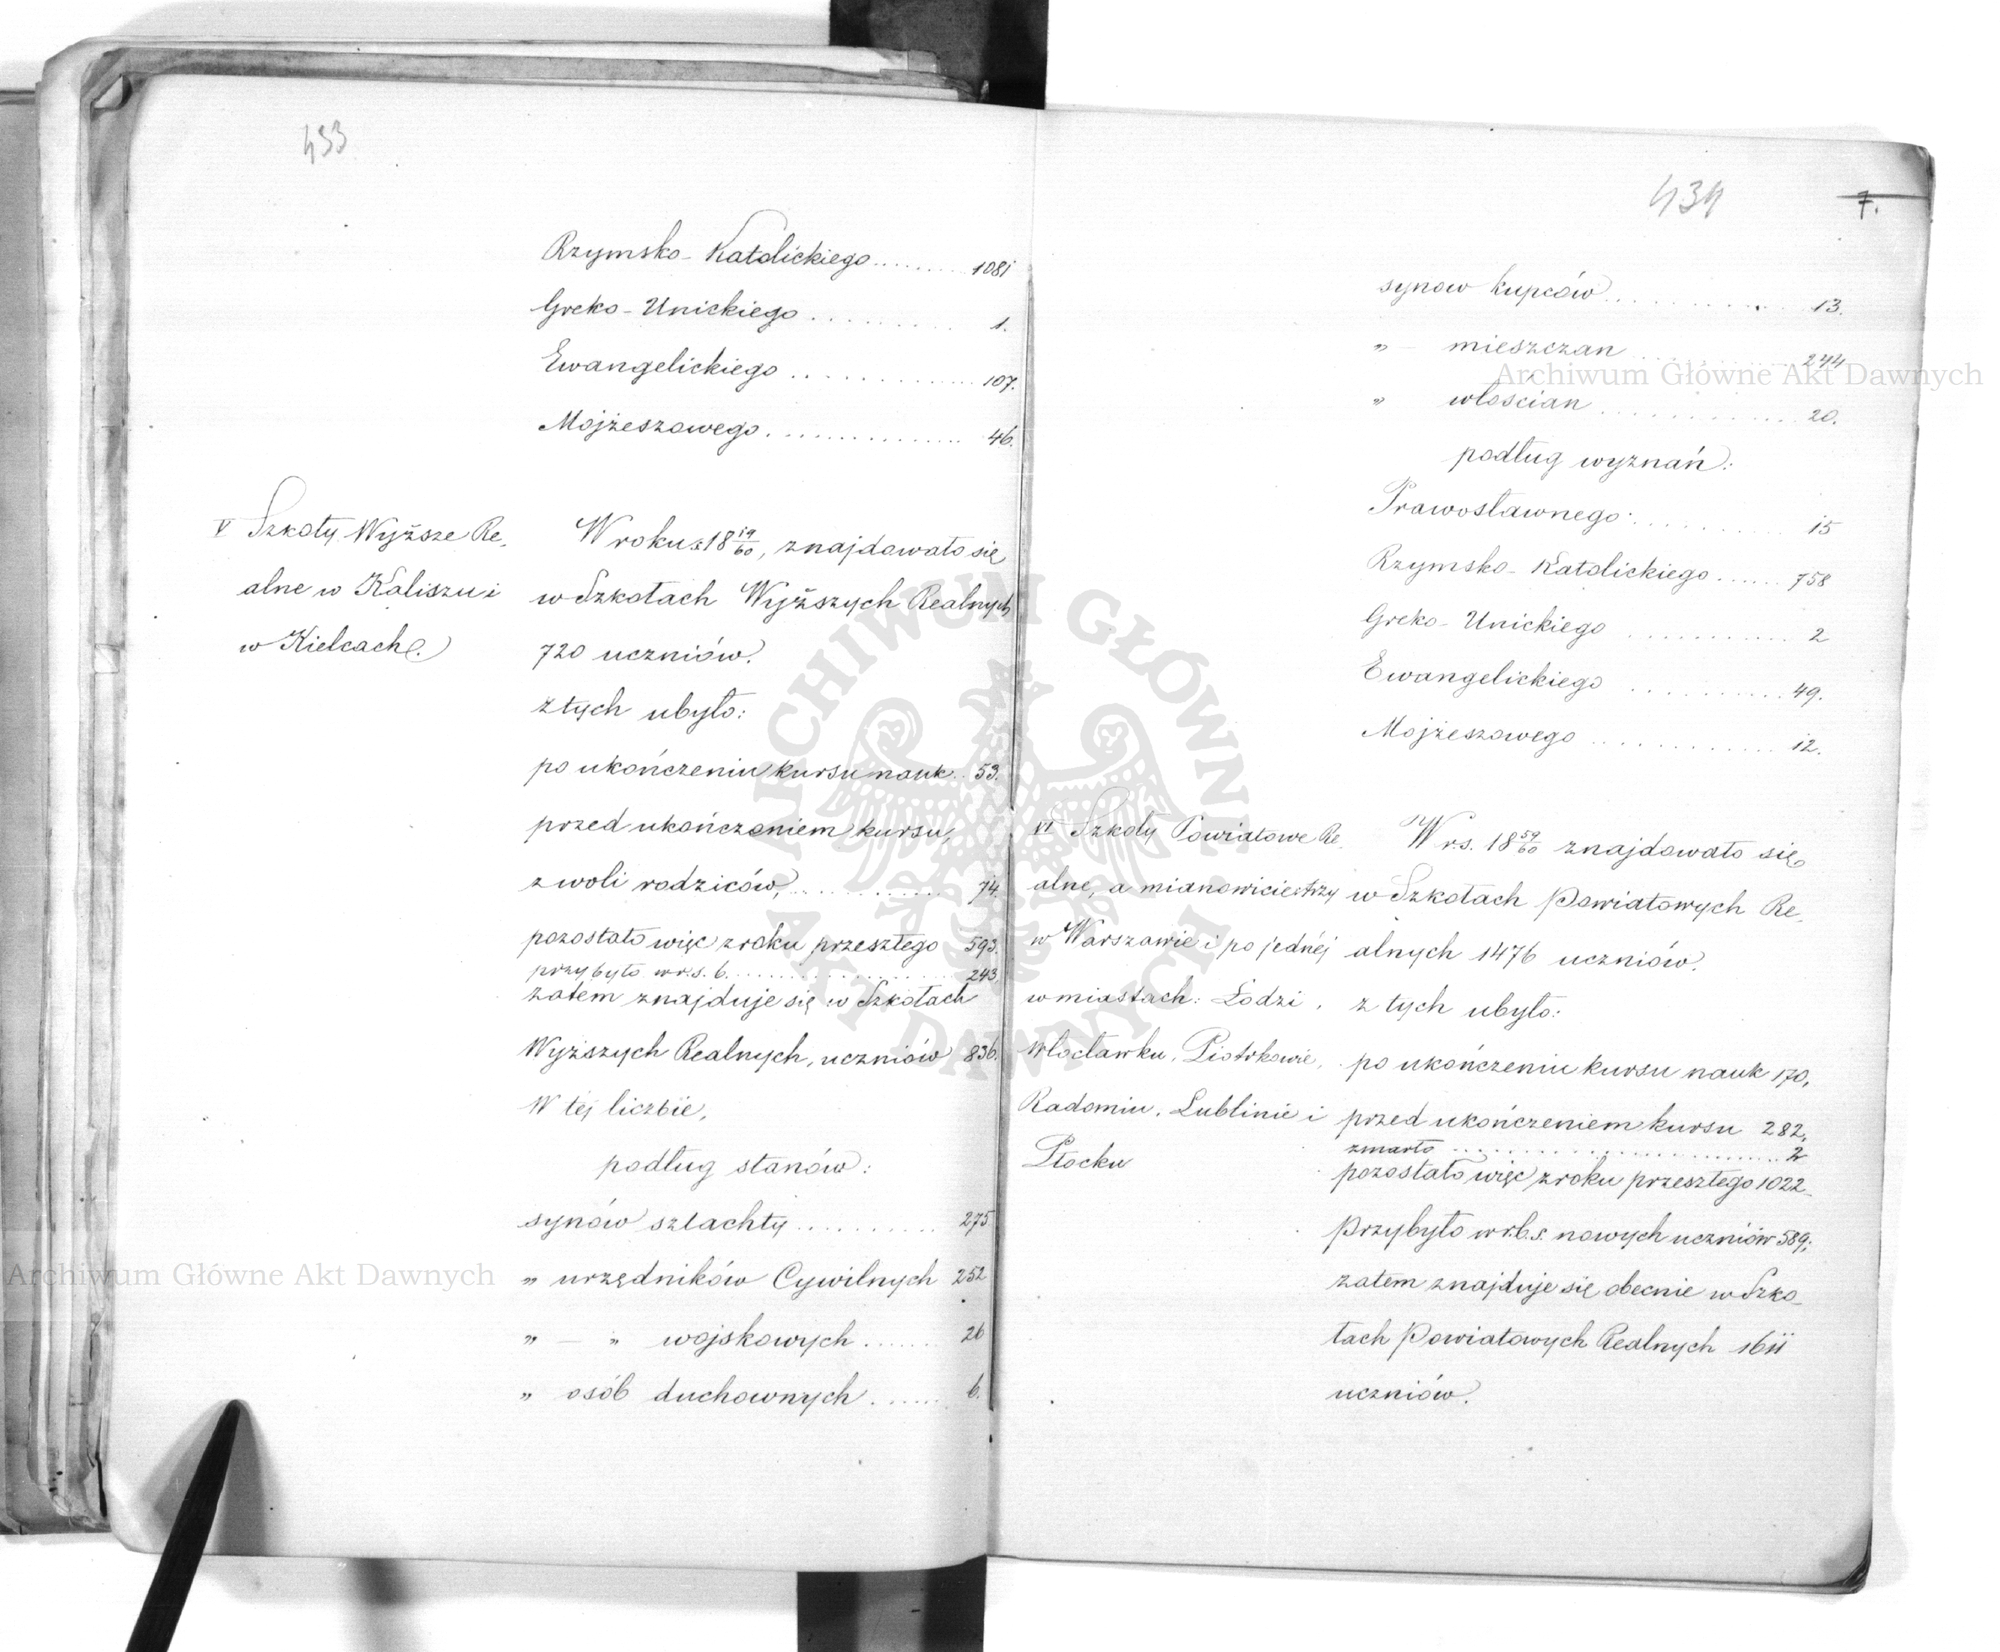 433
Rzymsko-Katolickiego........ 1081
Greko-Unickiego ......... 1.
Ewangelickiego ............. 107.
Mojżeszowego. .............. 46.
V Szkoły Wyższe Re-
alne w Kaliszu i
w Kielcach.
W roku s. 18 59/60, znajdowało się
w Szkołach Wyższych Realnych
720 uczniów.
z tych ubyło:
po ukończeniu kursu nauk.. 53.
przed ukończeniem kursu,
z woli rodziców, ............ 74.
pozostało więc z roku przeszłego 593.
przybyło w r. s. b. ................ 243.
zatem znajduje się w Szkołach
Wyższych Realnych, uczniów 836.
W tej liczbie,
podług stanów:
synów szlachty .......... 275
„ urzędników Cywilnych 252
„ — „ wojskowych ...... 26
„ osób duchownych ....... 6.
434
7.
synow kupców ............. 13.
„ — mieszczan ............ 244
„ włościan ............. 20.
podług wyznań:
Prawosławnego .......... 15
Rzymsko-Katolickiego ...... 758
Greko-Unickiego ........... 2
Ewangelickiego .......... 49.
Mojżeszowego ............. 12.
VI Szkoły Powiatowe Re-
alne, a mianowicie: trzy
w Warszawie i po jednéj
w miastach: Łodzi,
Włocławku, Piotrkowie,
Radomiu, Lublinie i
Płocku
W r.s. 18 59/60 znajdowało się
w Szkołach Powiatowych Re-
alnych 1476 uczniów.
z tych ubyło:
po ukończeniu kursu nauk 170,
przed ukończeniem kursu 282,
zmarło ........................ 2
pozostało więc z roku przeszłego 1022
przybyło w r.b.s. nowych uczniów 589;
zatem znajduje się obecnie w Szko-
łach Powiatowych Realnych 1611
uczniów.
Archiwum Główne Akt Dawnych
Archiwum Główne Akt Dawnych
ARCHIWUM GŁÓWNE AKT DAWNYCH